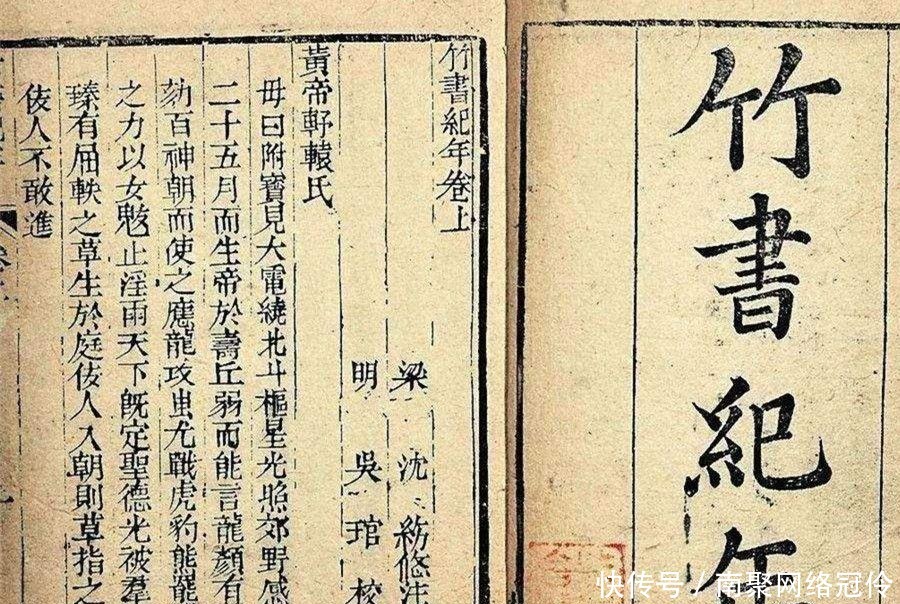 竹書紀年
竹書紀年卷上
梁 沈 約修注
明 吳 琯 校
黃帝軒轅氏
母曰附寶見大電繞北斗樞星光照郊野感
二十五月而生帝於壽丘弱而能言龍顏有
劾百神朝而使之應龍攻蚩尤戰虎豹熊羆
之力以女魃止淫雨天下既定聖德光被羣
臻有屈軼之草生於庭佞人入朝則草指之
佞人不敢進
快传号／南聚网络冠伶